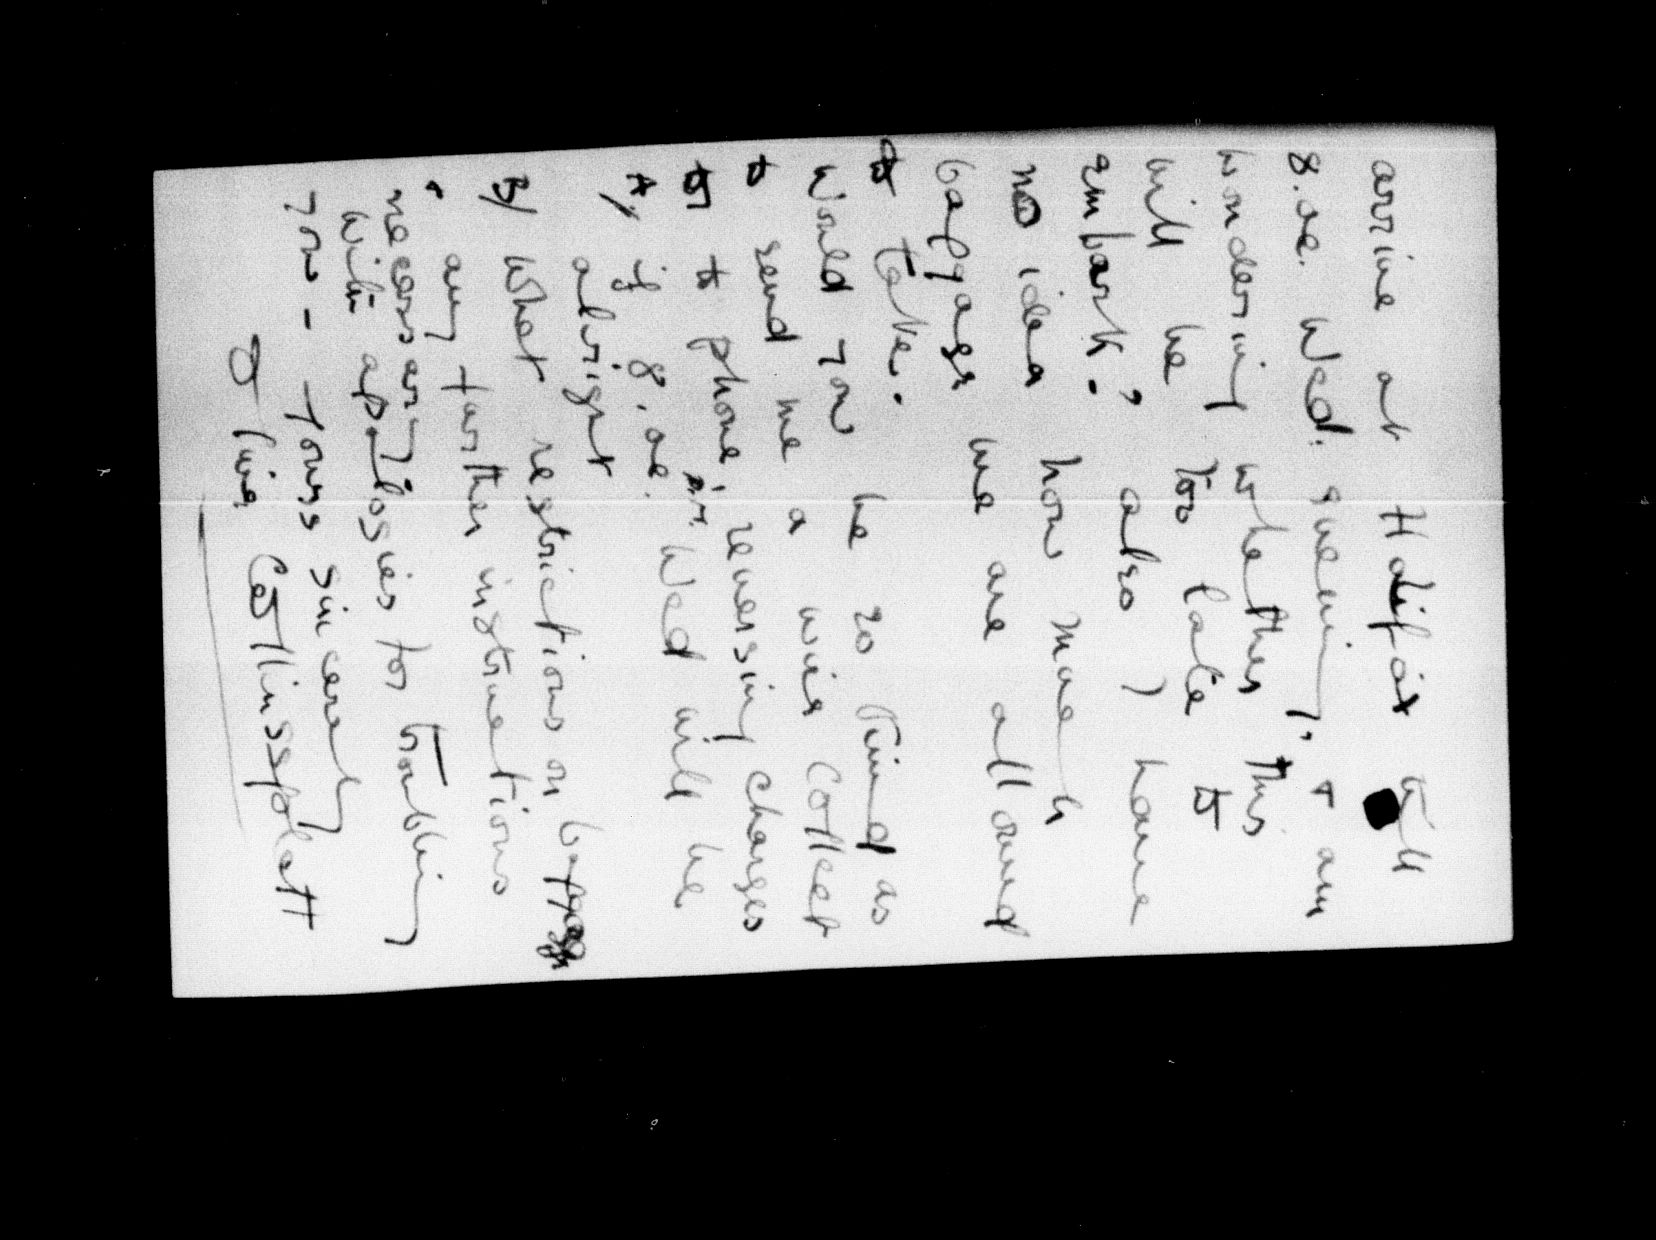 arrive at Halifax till
8.oc. Wed. evening, & am
wondering whether this
will be too late to
embark? also I have
no idea how much
baggage we are allowed
to take.
Would you be so kind as
to send me a wire collect
or to phone me reversing charges
A/ if 8.oc. Wed will be
alright
B/ What restrictions on baggage
& any further instructions
necessary
With apologies for troubling
you - Yours sincerely